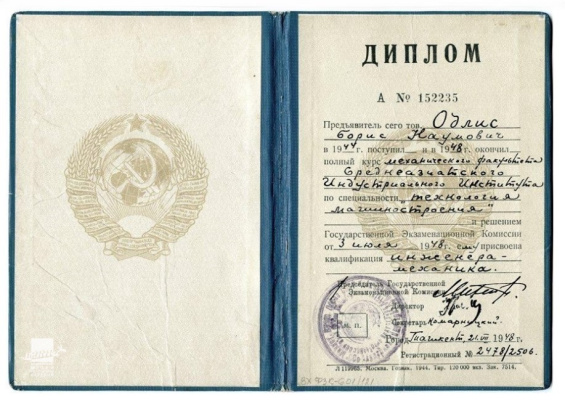 ДИПЛОМ
А № 152235
Предъявитель сего тов. Одлис
Борис Наумович
в 1944 г. поступил и в 1948 г. окончил
полный курс механического факультета
Среднеазиатского
Индустриального Института
по специальности „технология
машиностроения"
и решением
Государственной Экзаменационной Комиссии
от 3 июля 1948 г. ему присвоена
квалификация инженера-
механика.
Председатель Государственной
Экзаменационной Комиссии
Директор
Секретарь Комарницкий
Город Ташкент, 21.VII 1948 г.
Регистрационный № 2478/2506.
М. П.
Л 112905. Москва. Гознак. 1944. Тир. 120 000 экз. Зак. 7514.